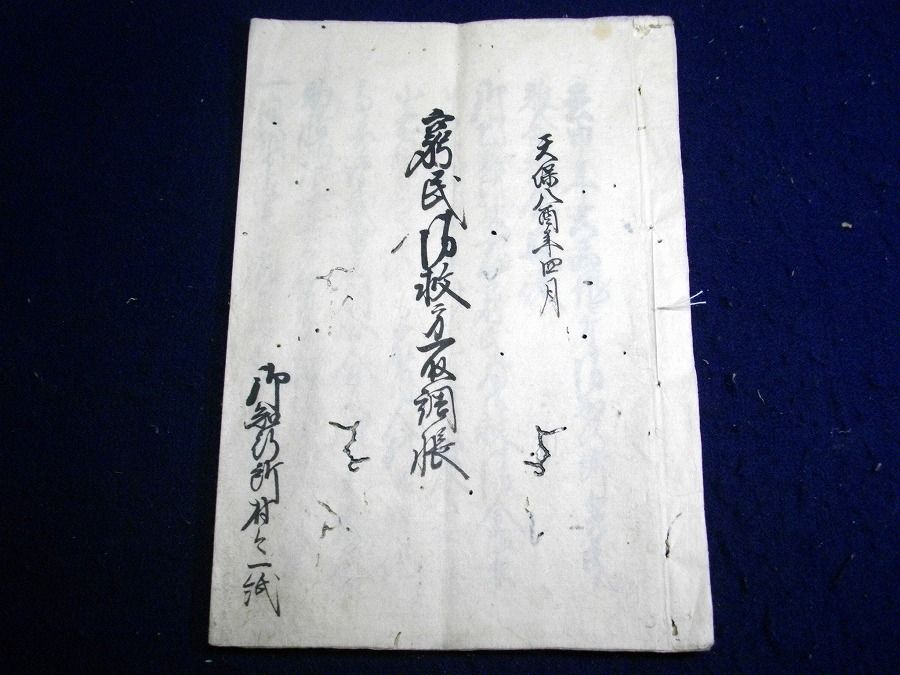 天保八酉年四月
窮民御救方取調帳
御知行所村々一紙